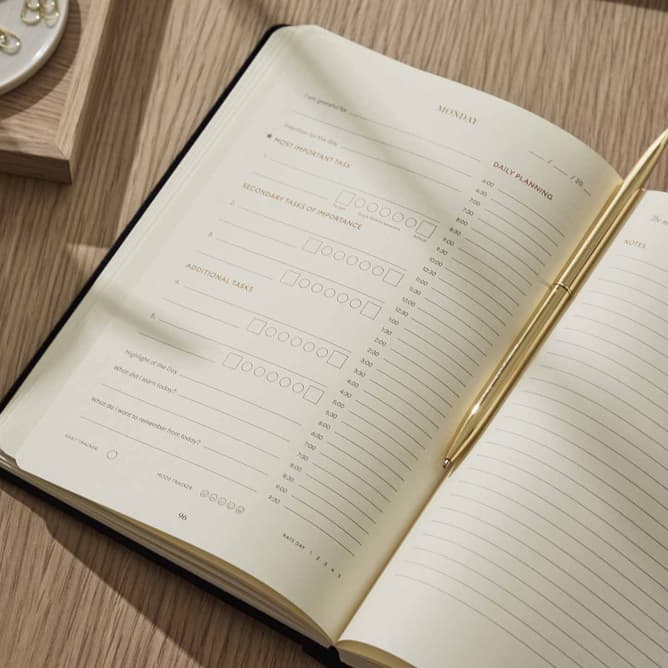 MONDAY
I am grateful for
/ / 20
Intention for the day
MOST IMPORTANT TASK
1.
SECONDARY TASKS OF IMPORTANCE
2.
3.
ADDITIONAL TASKS
4.
5.
Highlight of the Day
What did I learn today?
What do I want to remember from today?
HABIT TRACKER
MOOD TRACKER
96
DAILY PLANNING
6:00
6:30
7:00
7:30
8:00
8:30
9:00
9:30
10:00
10:30
11:00
11:30
12:00
12:30
1:00
1:30
2:00
2:30
3:00
3:30
4:00
4:30
5:00
5:30
6:00
6:30
7:00
7:30
8:00
8:30
9:00
9:30
RATE DAY 1 2 3 4 5
NOTES